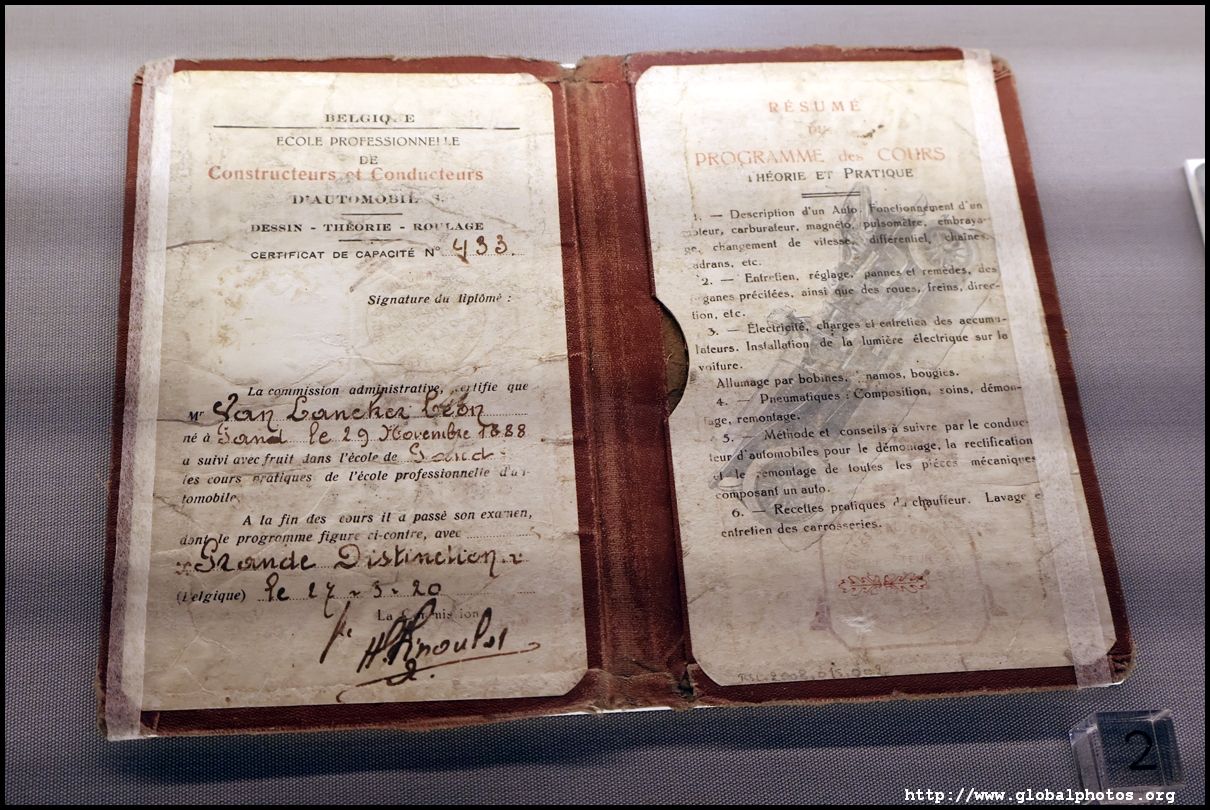 BELGIQUE
ECOLE PROFESSIONNELLE
DE
Constructeurs et Conducteurs
D'AUTOMOBILES.
DESSIN - THÉORIE - ROULAGE
CERTIFICAT DE CAPACITÉ N° 433.
Signature du diplômé :
La commission administrative, certifie que
Mr Van Lancker Léon
né à Gand le 29 Novembre 1888
a suivi avec fruit dans l'école de Gand
les cours pratiques de l'école professionnelle d'au-
tomobile.
A la fin des cours il a passé son examen,
dont le programme figure ci-contre, avec
Grande Distinction
(Belgique) le 27-3-20
La Commission
RÉSUMÉ
DU
PROGRAMME des COURS
THÉORIE ET PRATIQUE
1. — Description d'un Auto. Fonctionnement d'un
moteur, carburateur, magnéto, pulsomètre, embraya-
ge, changement de vitesse, différentiel, chaînes,
cadrans, etc.
2. — Entretien, réglage, pannes et remèdes, des
organes précitées, ainsi que des roues, freins, direc-
tion, etc.
3. — Électricité, charges et entretien des accumu-
lateurs. Installation de la lumière électrique sur la
voiture.
Allumage par bobines, dynamos, bougies.
4. — Pneumatiques : Composition, soins, démon-
tage, remontage.
5. — Méthode et conseils à suivre par le conduc-
teur d'automobiles pour le démontage, la rectification
et le remontage de toutes les pièces mécaniques
composant un auto.
6. — Recettes pratiques du chauffeur. Lavage et
entretien des carrosseries.
2
http://www.globalphotos.org